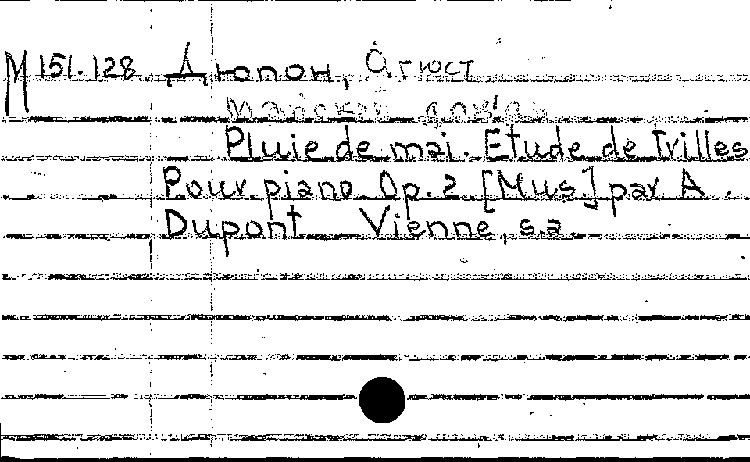 М 151.128 Дюпон, Огюст
Майский дождь
Pluie de mai. Etude de Trilles
Pour piano Op. 2 [Mus.] par A.
Dupont Vienne, s.a.